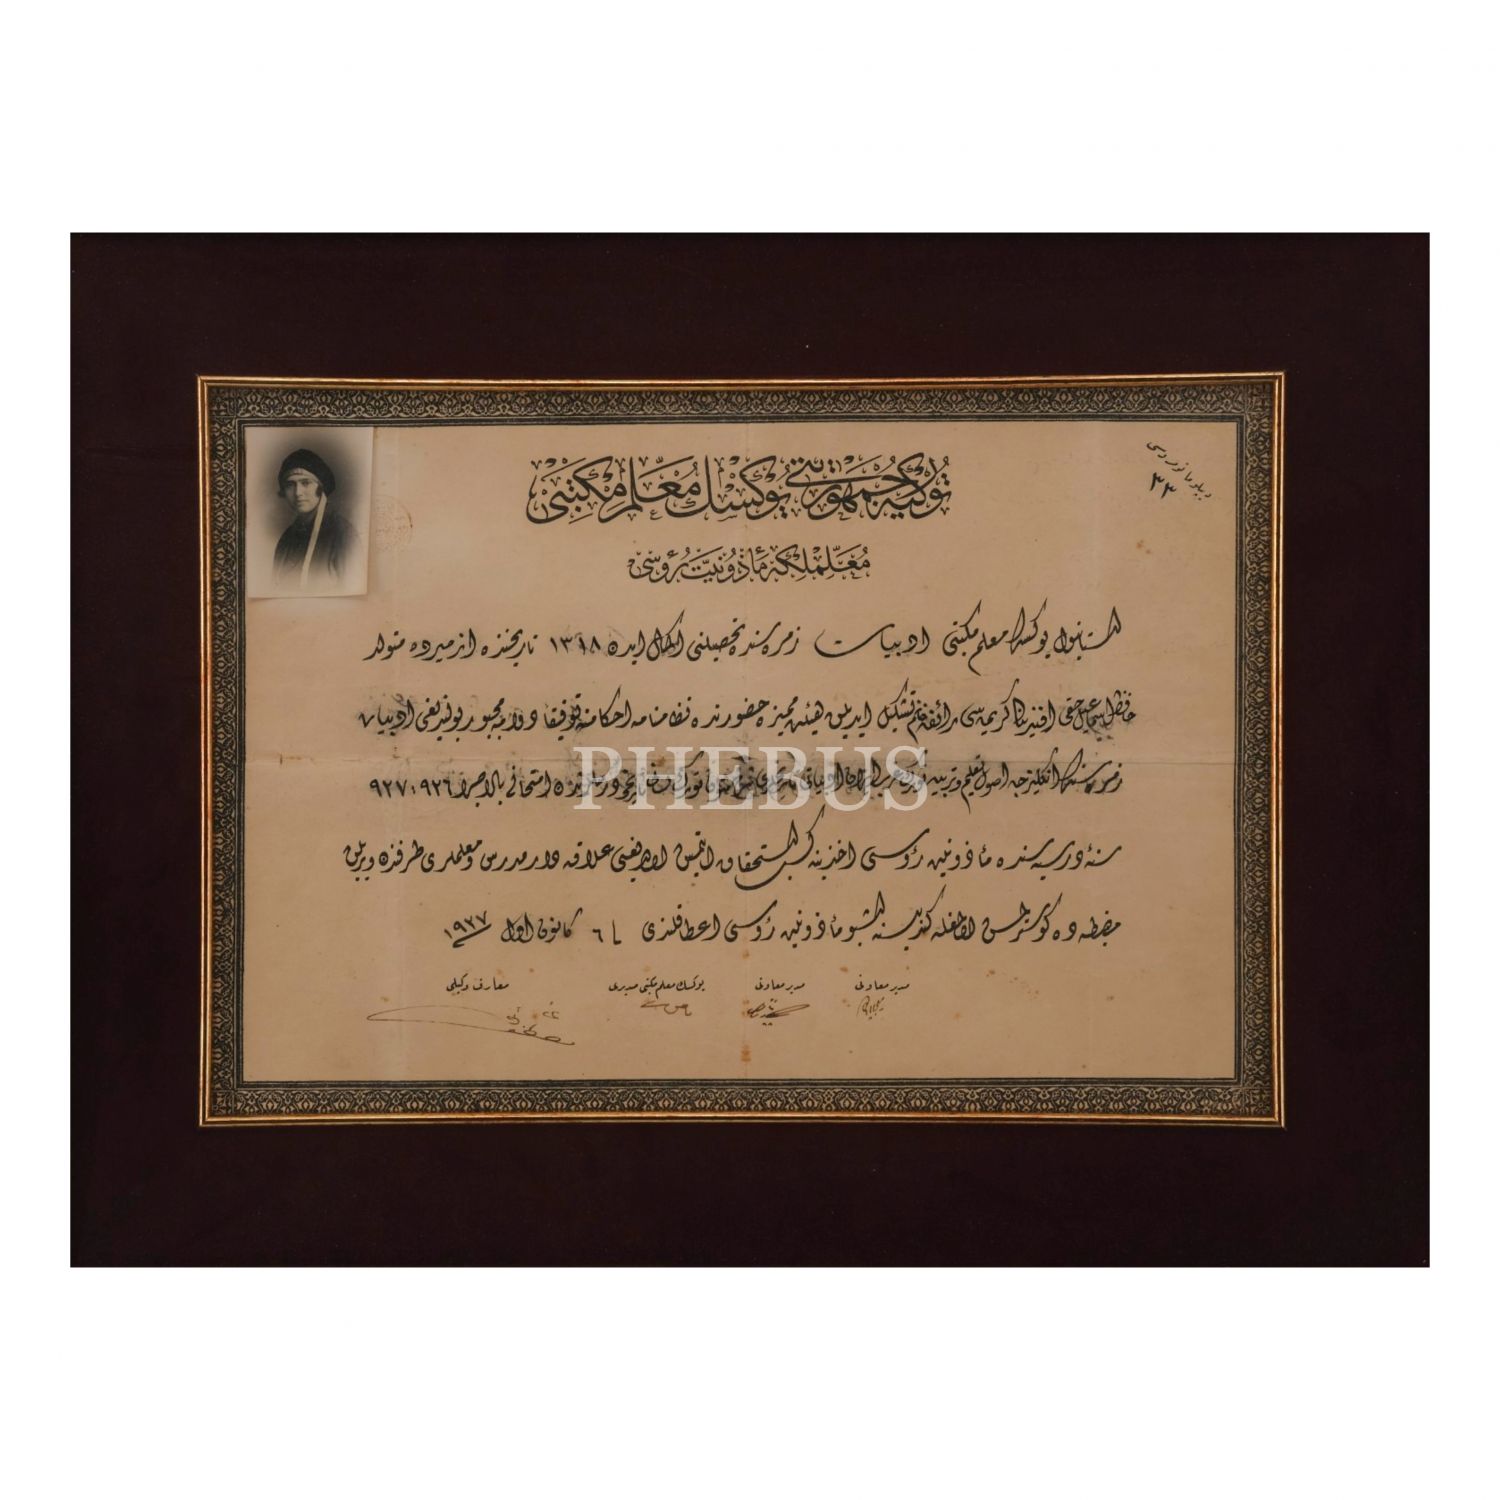 دیپلوما نومروسی
٣٣
تورکیه جمهوریتی یوکسك معلم مکتبی
معلملکه مأذونیت رؤسی
استانبول یوکسك معلم مکتبی ادبیات زمره سنده تحصیلنی اکمال ایدن ١٣١٨ تاریخنده ازمیرده متولد
حافظ اسماعیل حقی افندینك کریمه سی رائفه خانم تشکیل ایدیلن هیئت ممیزه حضورنده نظامنامه احکامنه توفیقا دوامه مجبور بولندیغی ادبیات
زمره سنك انکلیزجه اصول تعلیم و تربیه ادبیاتی امتحانی بالاجرا ٩٢٦-٩٢٧
سنۀ درسیه سنده مأذونیت رؤسی اخذینه کسب استحقاق ایتمش اولدیغی علاقه دار مدرس و معلملری طرفندن ویریلن
مضبطه ده کوسترلمش اولمغله کندیسنه اشبو مأذونیت رؤسی اعطا قلندی ٦ کانون اول ١٩٢٧
مدیر معاونی مدیر معاونی یوکسك معلم مکتبی مدیری معارف وکیلی
PHEBUS